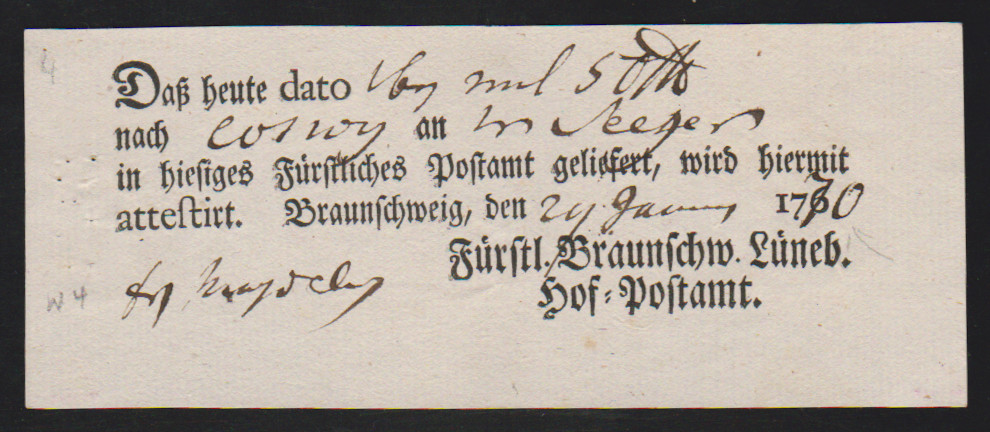 4
Daß heute dato mit 5
nach Coswy an Hr Seeger
in hiesiges Fürstliches Postamt geliefert, wird hiermit
attestirt. Braunschweig, den 29 Janua 1770
Fürstl. Braunschw. Lüneb.
Hof-Postamt.
w 4